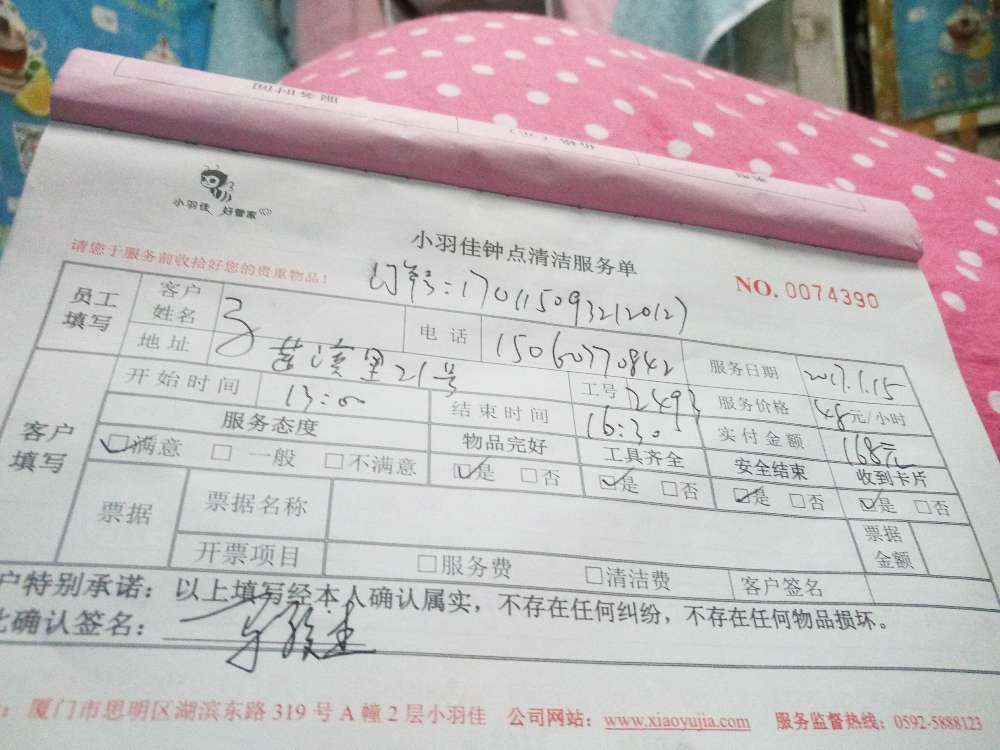 小羽佳 好管家
小羽佳钟点清洁服务单
请您于服务前收拾好您的贵重物品！
NO. 0074390
订单号：
员工填写 客户姓名 电话 15060770842 服务日期 2017.1.15
地址 21号 工号 2493 服务价格 48元/小时
客户填写 开始时间 13:00 结束时间 16:30 实付金额 168元
服务态度 物品完好 工具齐全 安全结束 收到卡片
☑满意 □一般 □不满意 ☑是 □否 ☑是 □否 ☑是 □否 ☑是 □否
票据 票据名称 票据金额
开票项目 □服务费 □清洁费 客户签名
户特别承诺：以上填写经本人确认属实，不存在任何纠纷，不存在任何物品损坏。
此确认签名：
厦门市思明区湖滨东路 319 号 A 幢 2 层小羽佳 公司网站：www.xiaoyujia.com 服务监督热线：0592-5888123